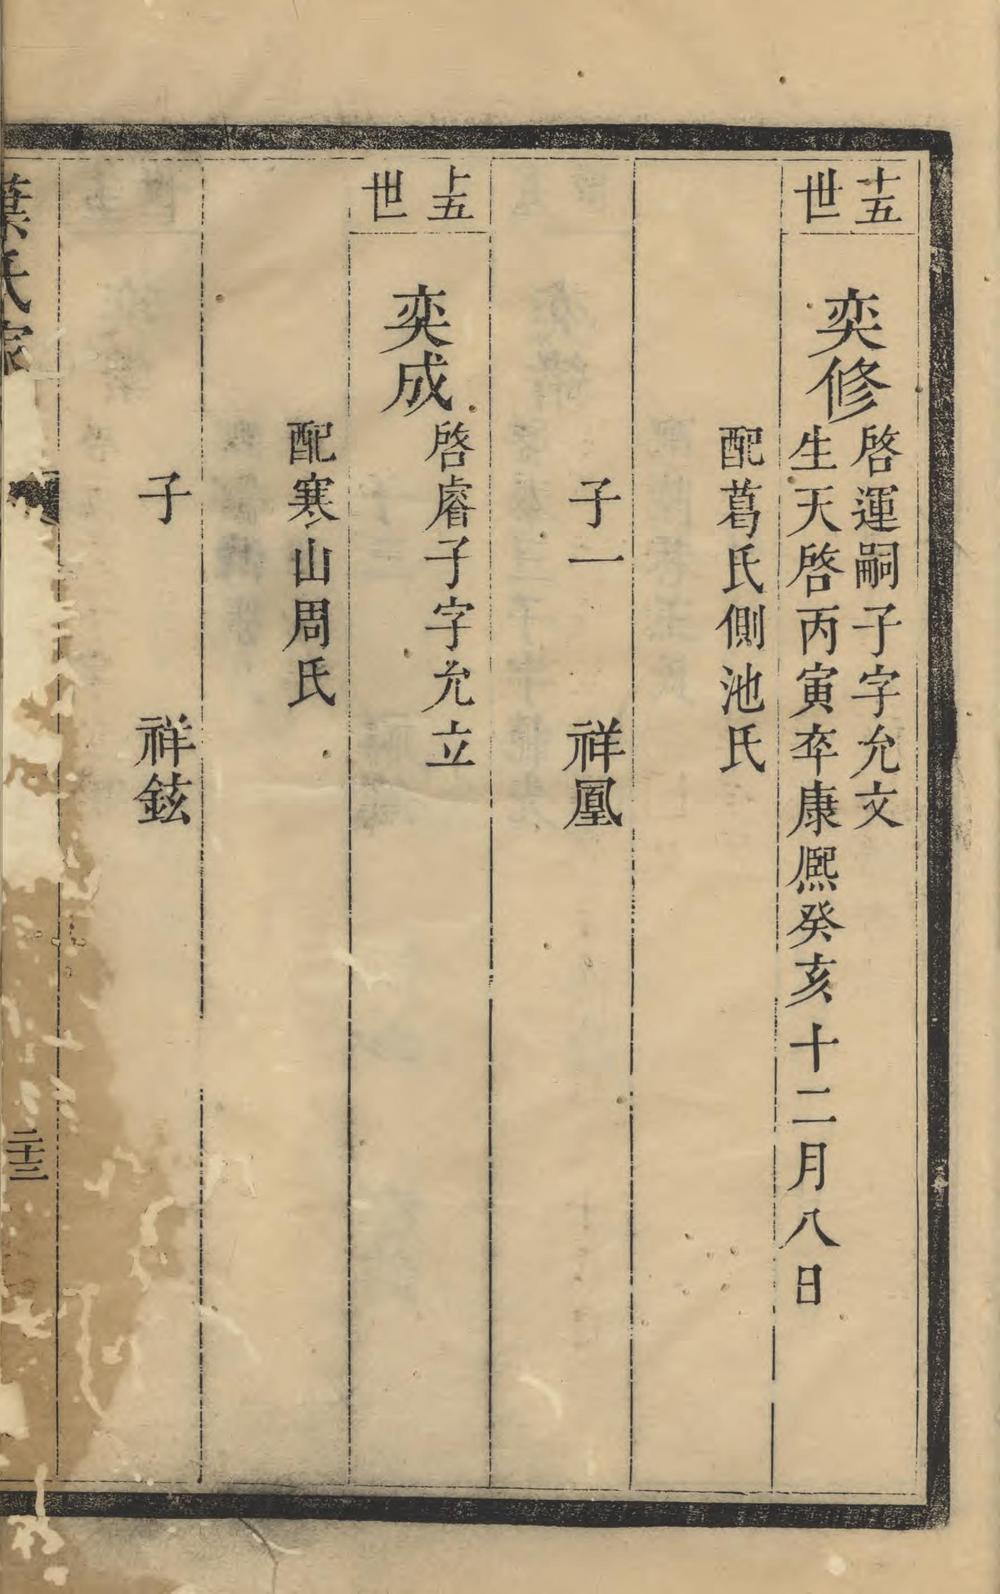 十五世
奕修
啓運嗣子字允文
生天啓丙寅卒康熙癸亥十二月八日
配葛氏側池氏
子一 祥凰
十五世
奕成
啓睿子字允立
配寒山周氏
子 祥鉉
葉氏家
二十三